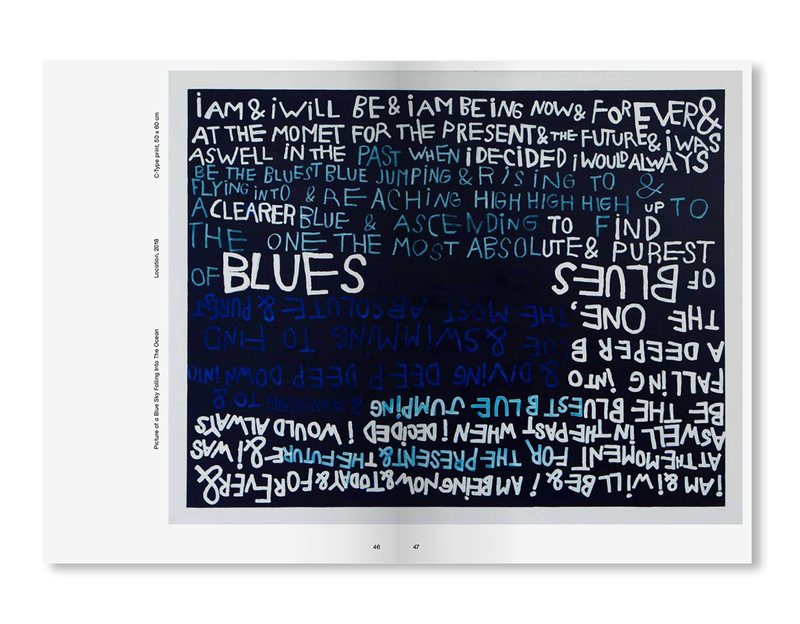 iAM & iWiLL BE & iAM BEiNG NOW & FOREVER &
AT THE MOMET FOR THE PRESENT & THE FUTURE & iWAS
ASWELL iN THE PAST WHEN iDECiDED iWOULD ALWAYS
BE THE BLUEST BLUE JUMPiNG & RiSiNG TO &
FLYiNG iNTO & REACHiNG HIGH HIGH HIGH UP TO
A CLEARER BLUE & ASCENDiNG TO FiND
THE ONE THE MOST ABSOLUTE & PUREST
OF BLUES
iAM & iWiLL BE & I AM BEiNG NOW & TODAY & FOREVER &
AT THE MOMENT FOR THE PRESENT & THE FUTURE & i WAS
ASWELL iN THE PAST WHEN i DECiDED I WOULD ALWAYS
BE THE BLUEST BLUE JUMPiNG & RUNNING TO &
FALLiNG iNTO & DiViNG DEEP DEEP DOWN iNTO
A DEEPER BLUE & SWiMMiNG TO FiND
THE ONE, THE MOST ABSOLUTE & PUREST
OF BLUES
Picture of a Blue Sky Falling Into The Ocean
Location, 2018
C-Type print, 50 x 60 cm
46
47